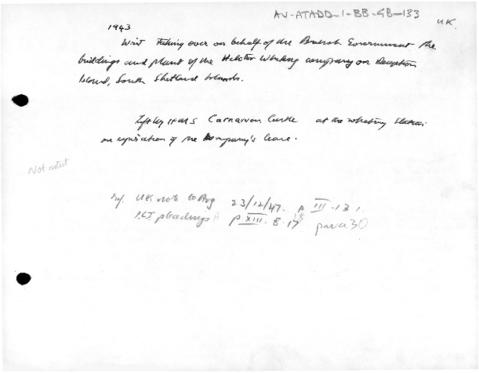 AU-ATADD-1-BB-GB-133
UK.
1943
Writ taking over on behalf of the British Government the
buildings and plant of the Hektor Whaling company on Deception
Island, South Shetland Islands.
Left by H.M.S Carnarvon Castle at the whaling station
on expiration of the Company's lease.
Ref. UK note to Arg 23/12/47. p III.131
ICJ pleadings p XIII. 8.17 para 30